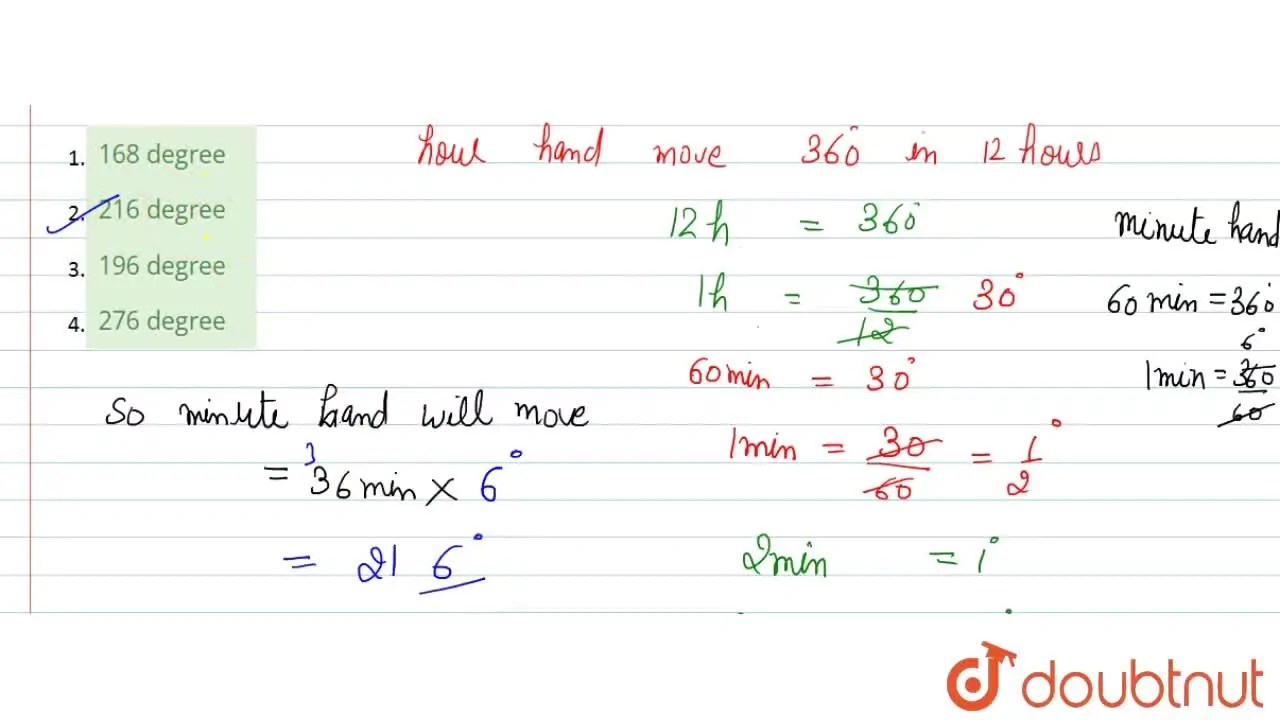 1. 168 degree
2. 216 degree
3. 196 degree
4. 276 degree
hour hand move 360° in 12 hours
12h = 360°
1h = 360/12 30°
60min = 30°
1min = 30/60 = 1°/2
2min = 1°
minute hand
60 min = 360°
6°
1min = 360/60
So minute hand will move
3
= 36min × 6°
= 216°
doubtnut